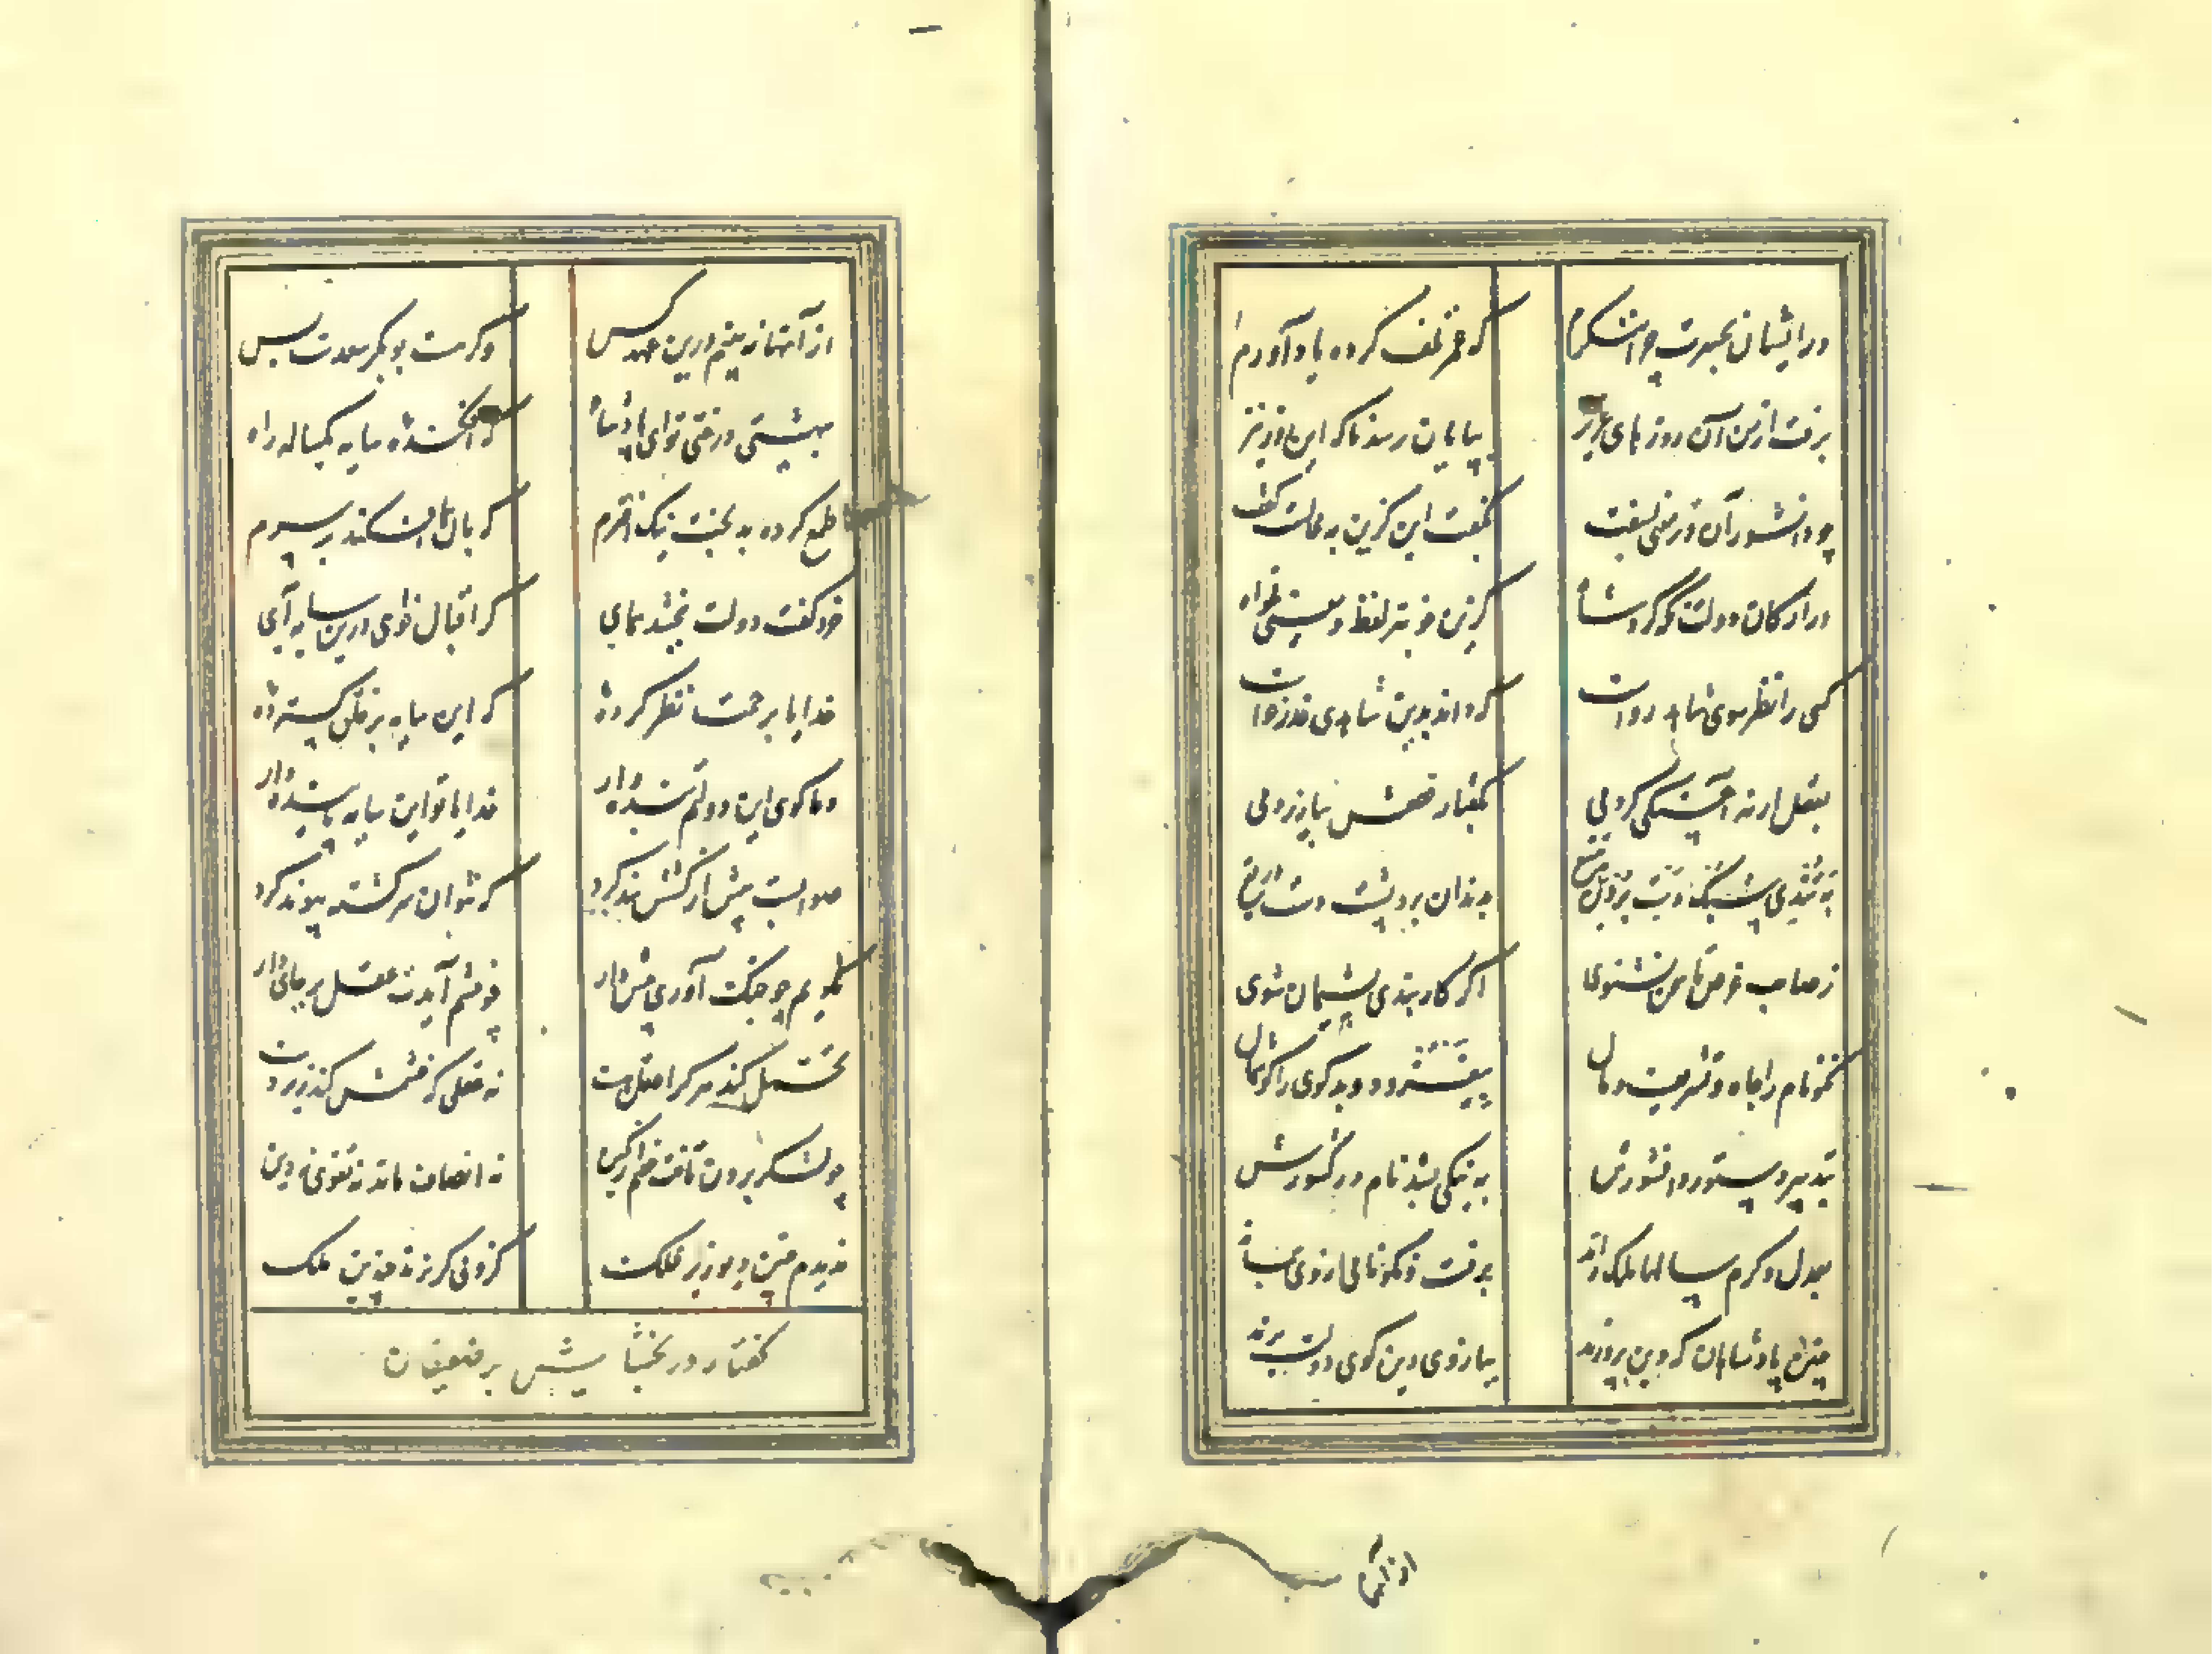 در ایشان بحسرت چرا ننگرم
که عمر تلف کرده یاد آورم
برفت از من آن روزهای عزیز
بپایان رسد ناگه این روز نیز
چو دانشور آن در معنی بسفت
بگفت این کزین به محالست گفت
در ارکان دولت نگه کرد شاه
کزین خوبتر لفظ و معنی مخواه
کسی را نظر سوی شاهد رواست
که داند بدین شاهدی عذر خواست
بعقل ار نه آهستگی کردمی
بگفتار خصمش بیازردمی
به تندی سبک دست بردن بتیغ
به دندان برد پشت دست دریغ
ز صاحب غرض تا سخن نشنوی
اگر کار بندی پشیمان شوی
نکونام را جاه و تشریف و مال
بیفزود و بدگوی را گوشمال
بتدبیر دستور دانشورش
به نیکی بشد نام در کشورش
بعدل و کرم سالها ملک راند
برفت و نکونامی از وی بماند
چنین پادشاهان که دین پرورند
ببازوی دین گوی دولت برند
از آنها
از آنها نبینم درین عهد کس
وگر هست بوبکر سعدست بس
بهشتی درختی تو ای پادشاه
که افکنده سایه یکساله راه
طمع کرده بد بخت نیک اخترم
که بال همای افکند بر سرم
خرد گفت دولت نبخشد همای
گر اقبال خواهی درین سایه آی
خدایا برحمت نظر کرده
که این سایه بر خلق گسترده
دعا گوی این دولتم بنده وار
خدایا تو این سایه پاینده دار
صوابست پیش از کشش بند کرد
که نتوان سر کشته پیوند کرد
نگویم چو جنگ آوری پیش دار
چو خشم آیدت عقل بر جای دار
تحمل کند هر کرا عقل هست
نه عقلی که خشمش کند زیر دست
چو لشکر برون تاخت خشم از کمین
نه انصاف ماند نه تقوی نه دین
ندیدم چنین دیو زیر فلک
کزو می گریزند چندین ملک
گفتار در بخشایش بر ضعیفان